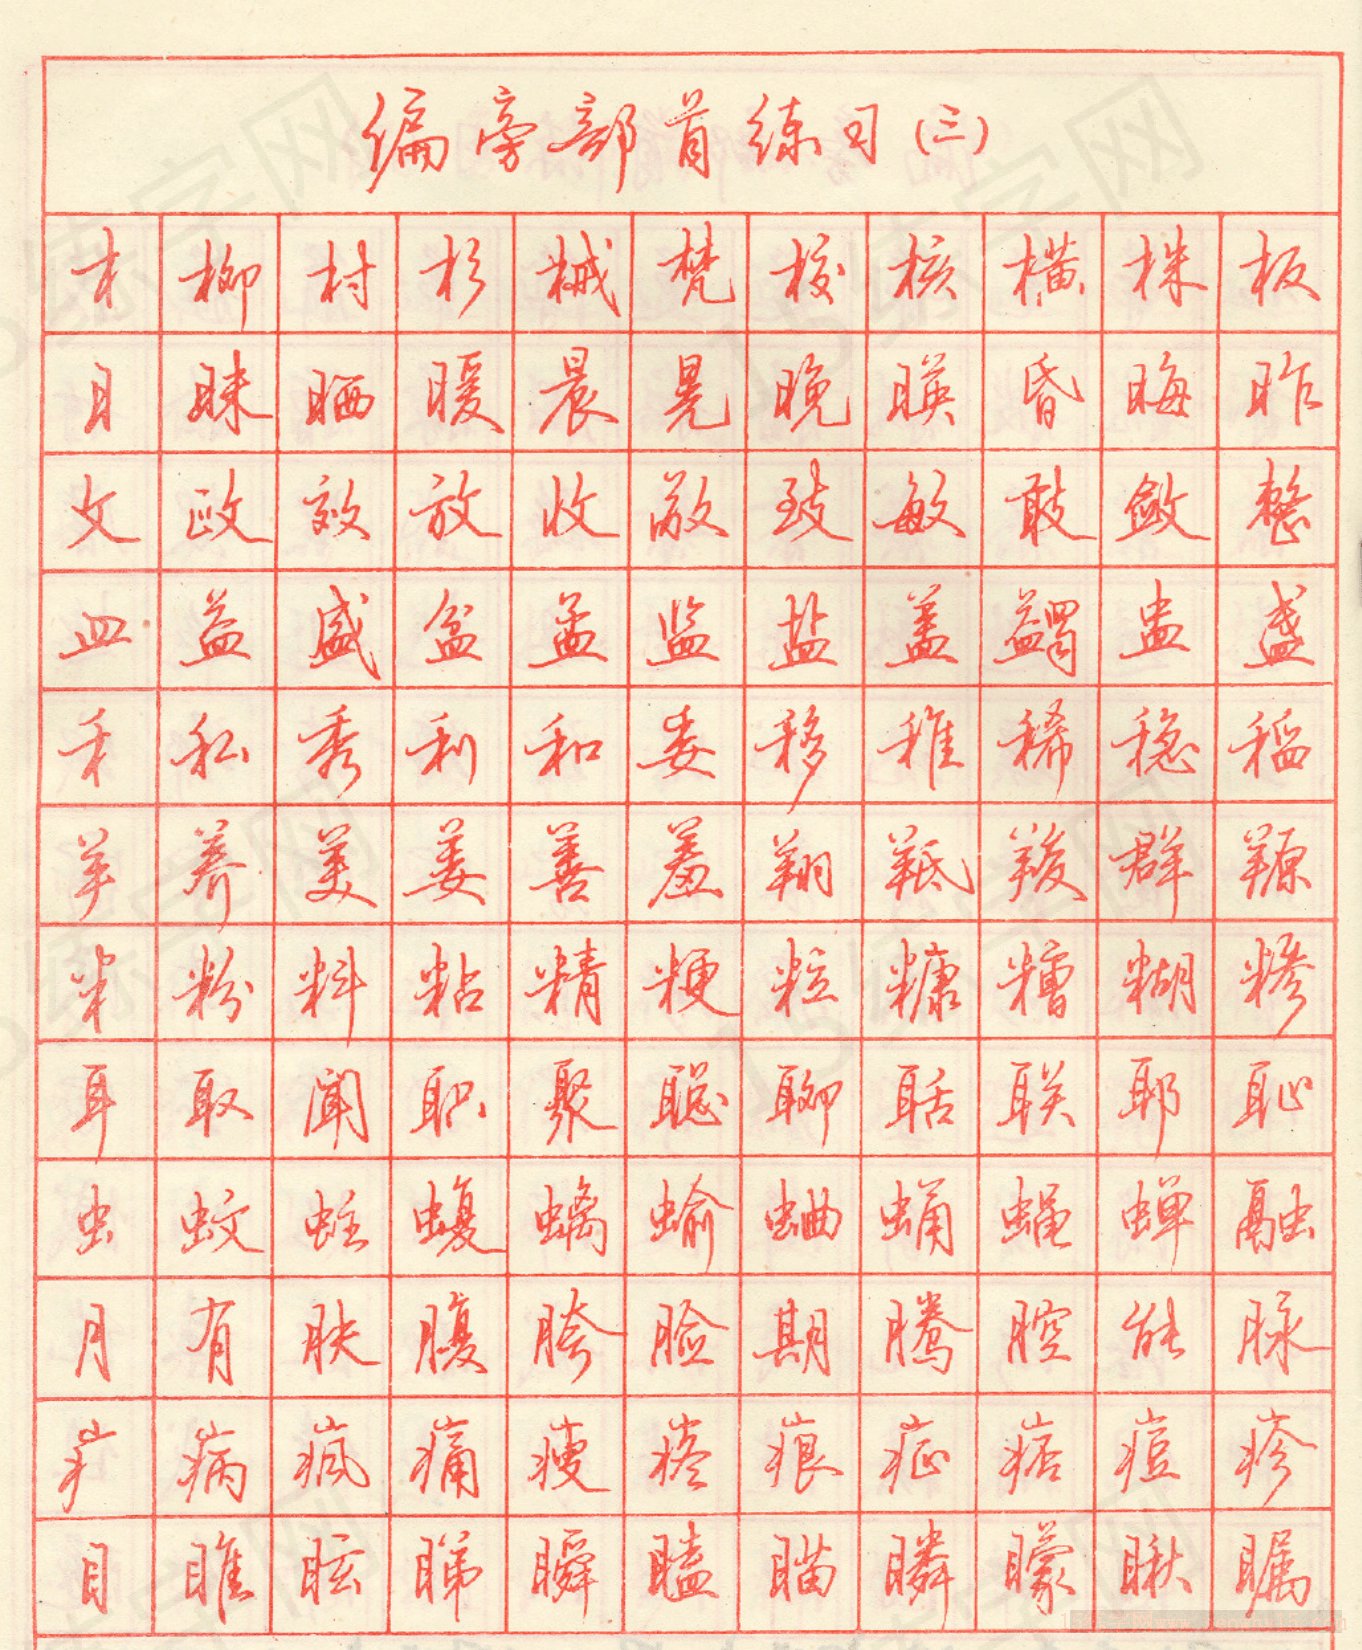 编旁部首练习(三)
木 柳 村 杉 械 梵 梭 核 横 株 板
日 昧 晒 暖 晨 晃 晚 暎 昏 晦 昨
攵 政 效 放 收 敌 致 敏 敢 敛 整
皿 益 盛 盆 孟 监 盐 盖 蠲 盅 盏
禾 私 秀 利 和 委 移 稚 稀 稳 稻
羊 养 美 姜 善 羞 翔 羝 羧 群 羱
米 粉 料 粘 精 粳 粒 糠 糟 糊 糁
耳 取 闻 职 聚 聪 聊 聒 联 耶 耻
虫 蚊 蛀 蝮 螭 蝓 蛐 蛹 蝇 蝉 融
月 有 肤 腹 胯 脸 期 腾 腔 能 脉
疒 病 疯 痛 瘦 疼 痕 症 痞 痘 疹
目 睢 眩 睇 瞬 瞌 瞄 瞵 矇 瞅 瞩